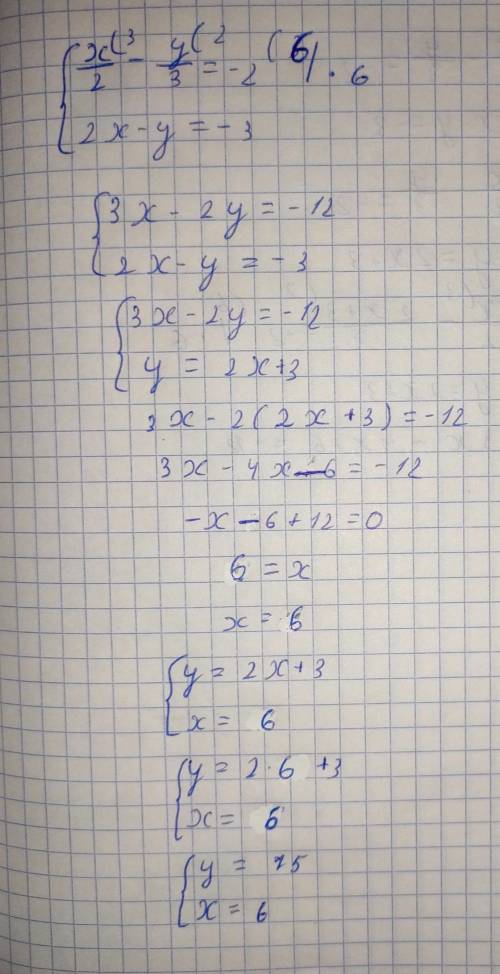 { x(3/2 - y(2/3 = -2 (6| · 6
2x - y = -3
{ 3x - 2y = -12
2x - y = -3
{ 3x - 2y = -12
y = 2x+3
3x - 2(2x+3) = -12
3x - 4x - 6 = -12
-x - 6 + 12 = 0
6 = x
x = 6
{ y = 2x+3
x = 6
{ y = 2·6 +3
x = 6
{ y = 15
x = 6